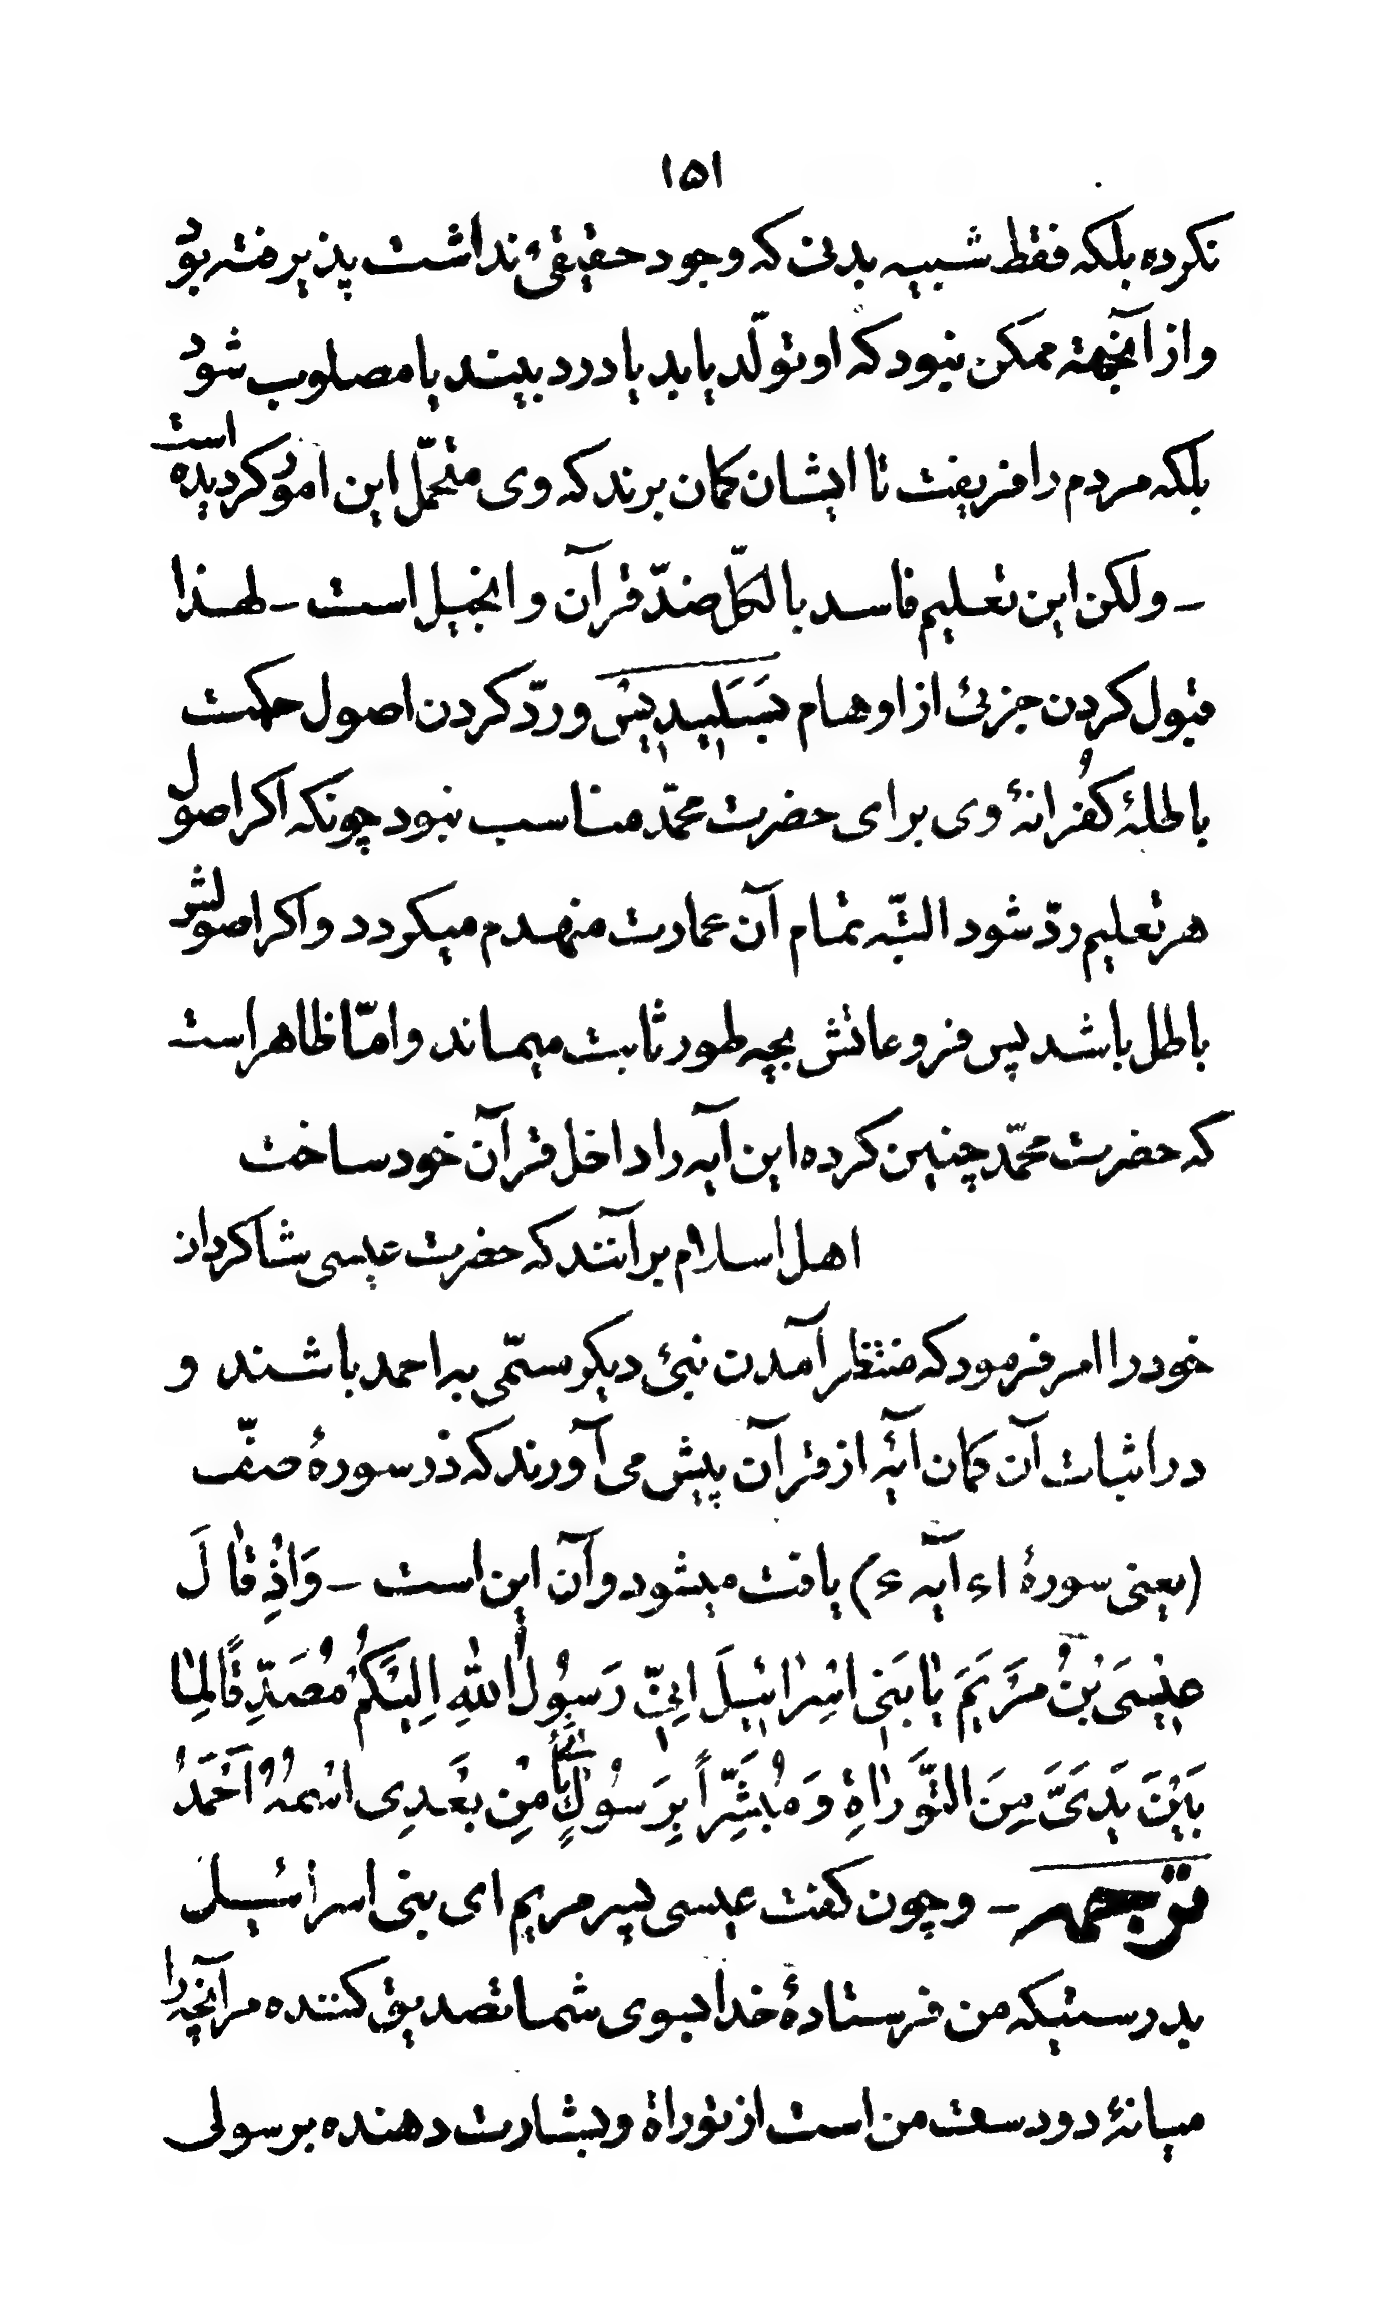 ۱۵۱
نکرده بلکه فقط شبیه بدنی که وجود حقیقیٔ نداشت پذیرفته بود
و از آنجهته ممکن نبود که او تولّد یابد یا درد بیند یا مصلوب شود
بلکه مردم را فریفت تا ایشان کمان برند که وی متحمّل این امور کردیده است
– ولکن این تعلیم فاسد بالکلّ ضدّ قرآن و انجیل است – لهذا
قبول کردن جزئی از اوهام بَسَلِیدِیس و ردّ کردن اصول حکمت
باطلهٔ کُفُرانهٔ وی برای حضرت محمّد مناسب نبود چونکه اکر اصول
هر تعلیم ردّ شود البتّه تمام آن عمارت منهدم میکردد و اکر اصولش
باطل باشد پس فروعاتش بچه طور ثابت میماند و امّا ظاهر است
که حضرت محمّد چنین کرده این آیه را داخل قرآن خود ساخت
اهل اسلام برآنند که حضرت عیسی شاکردان
خود را امر فرمود که منتظر آمدن نبیٔ دیکر مسمّی به احمد باشند و
در اثبات آن کمان آیهٔ از قرآن پیش می آورند که در سورهٔ صفّ
(یعنی سورهٔ ۶۱ آیه ۶) یافت میشود و آن این است – وَاِذْ قٰالَ
عیٖسَی بْنُ مَرْیَمَ یٰا بَنیٖ اسْرٰایٖٔیلَ اِنیّٖ رَسُولُ اللّٰهِ اِلَیْکُمْ مُصَدِّقًا لِمٰا
بَیْنَ یَدَیَّ مِنَ التَّوْرٰاةِ وَ مُبَشِّرًا بِرَسُولٍ یَأْتِی مِنْ بَعْدِی اسْمُهُ اَحْمَدُ
ترجمه – و چون کفت عیسی پسر مریم ای بنی اسرائیل
بدرستیکه من فرستادهٔ خدا بسوی شما تصدیق کننده مر آنچه را
میانهٔ دو دست من است از توراة و بشارت دهنده برسولی